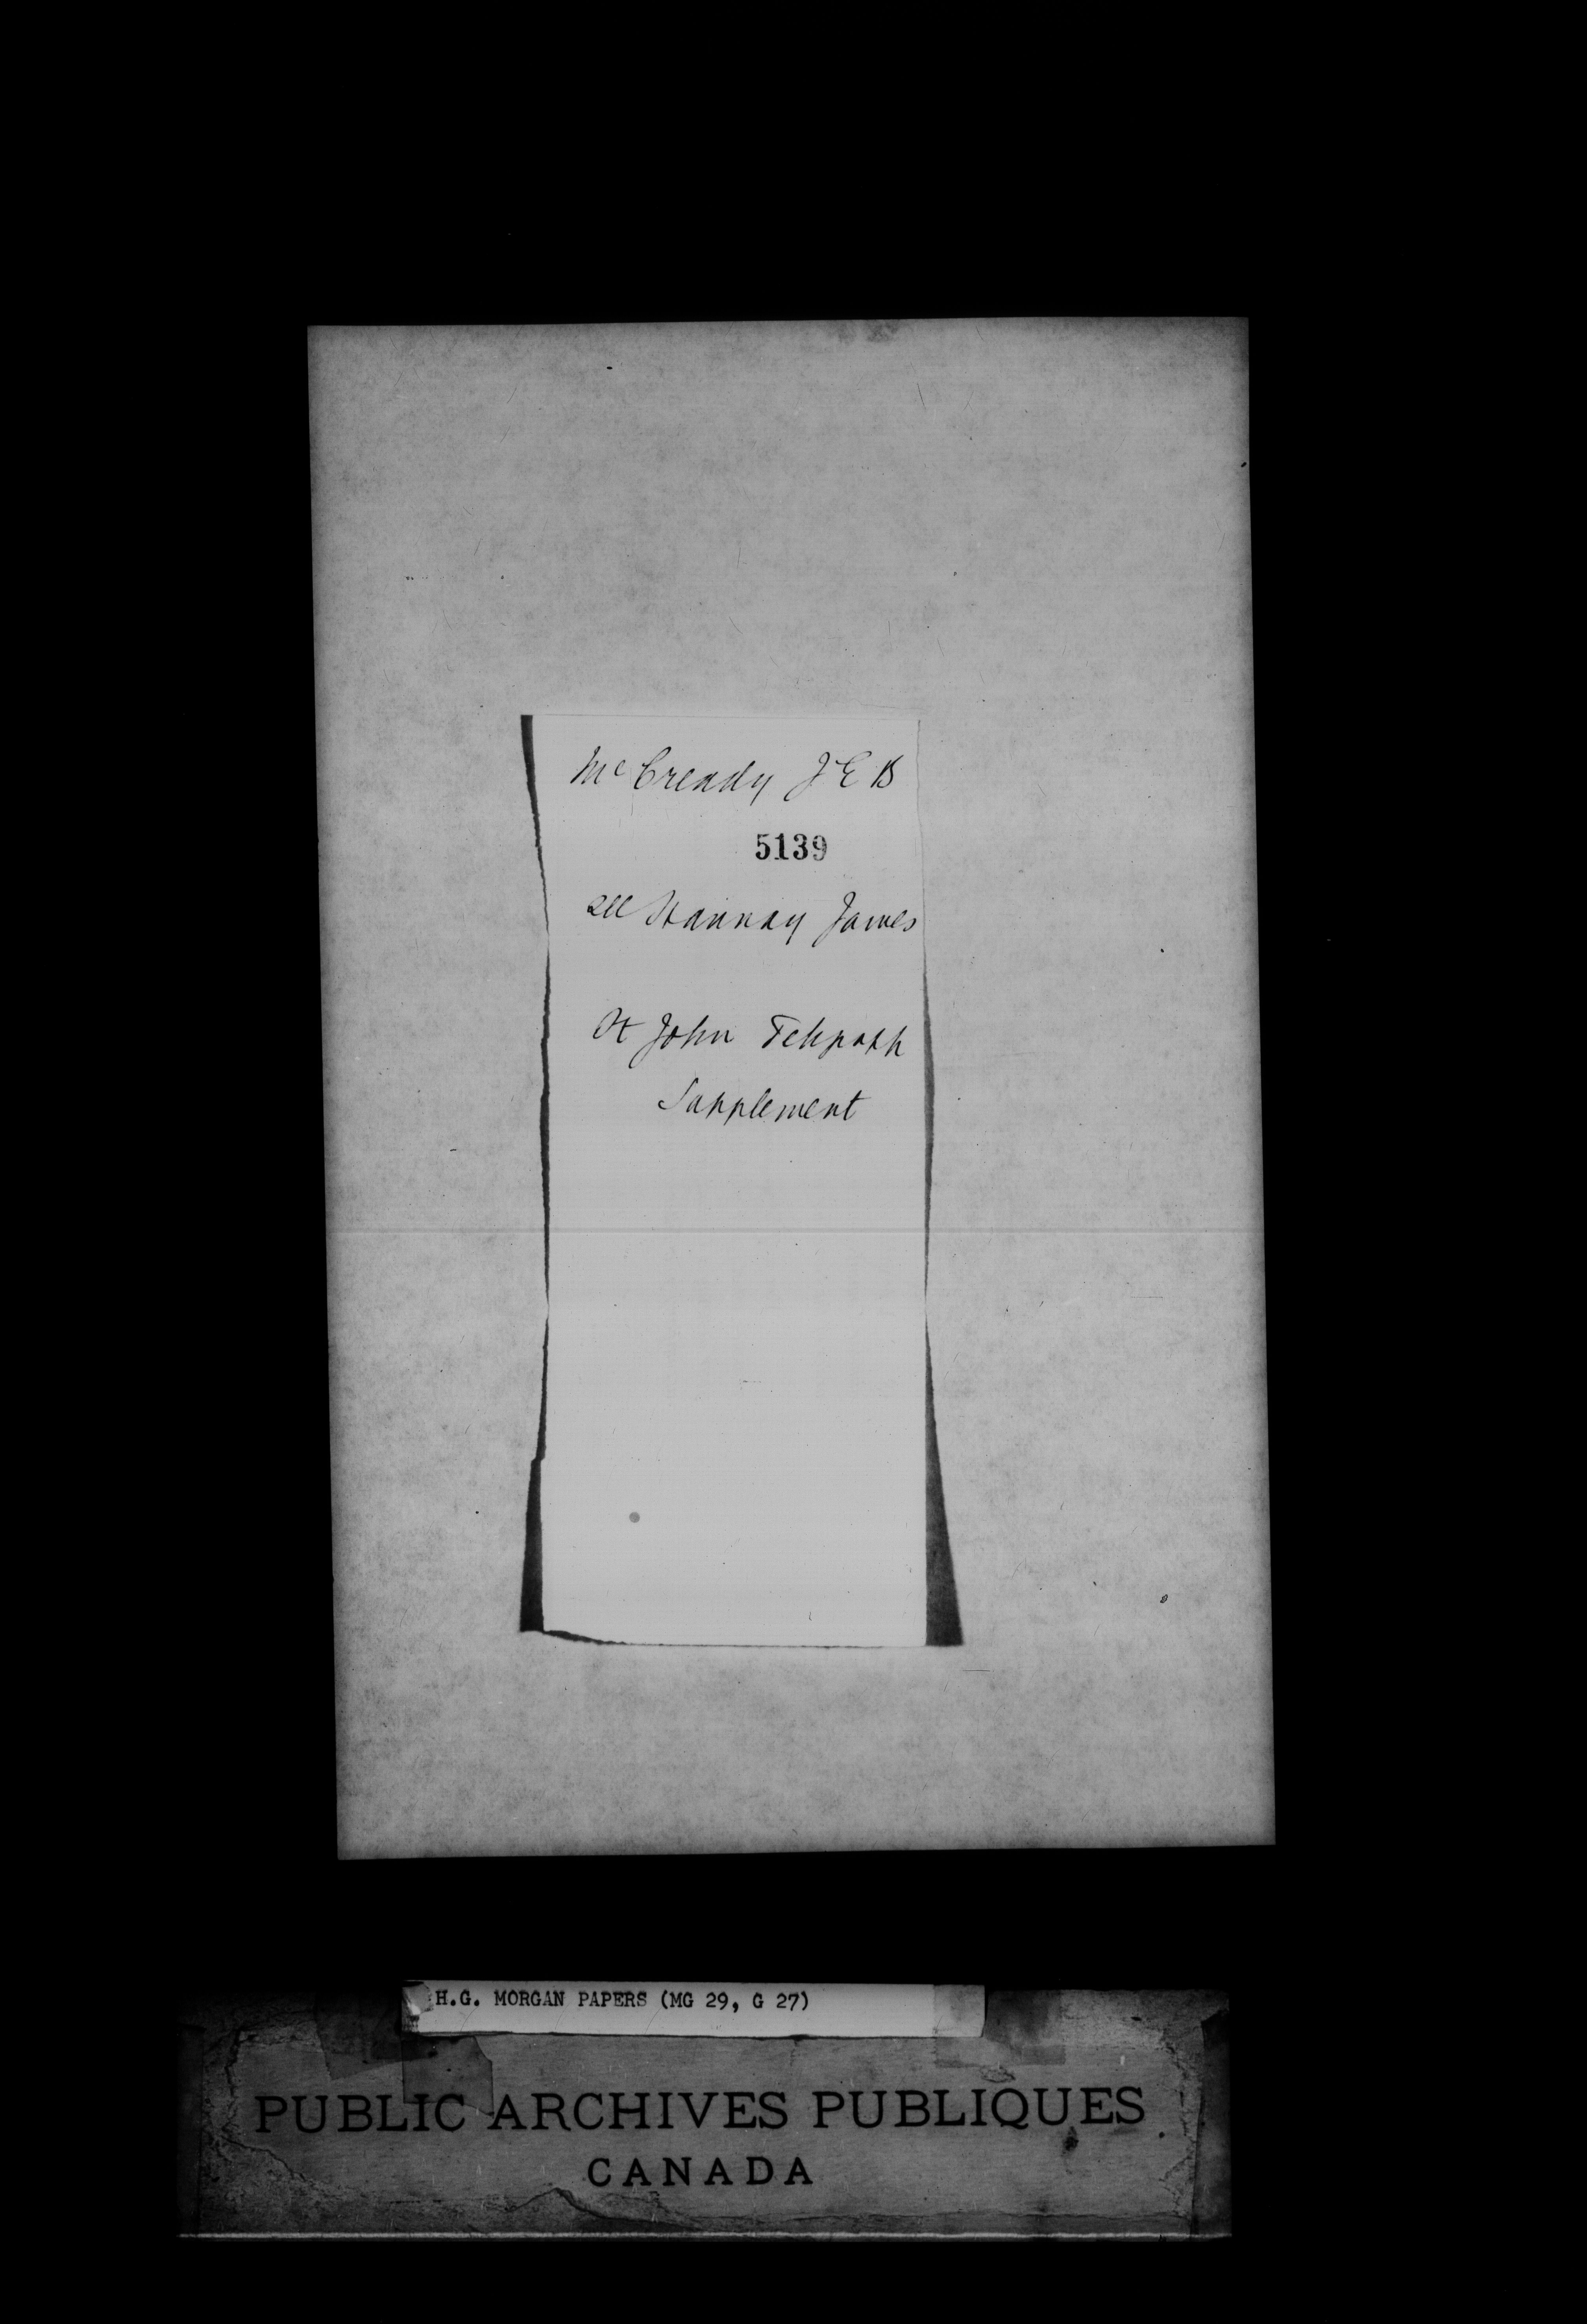 McCready J E B
5139
see Hannay James
St John Telgraph
Supplement
H.G. MORGAN PAPERS (MG 29, G 27)
PUBLIC ARCHIVES PUBLIQUES
CANADA